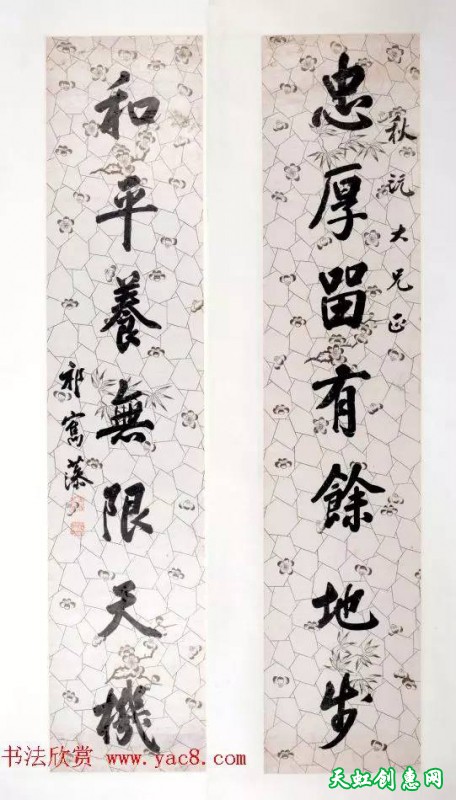 忠厚留有餘地步
秋沅大兄正
和平養無限天機
祁寯藻
书法欣赏 www.yac8.com
天虹创惠网